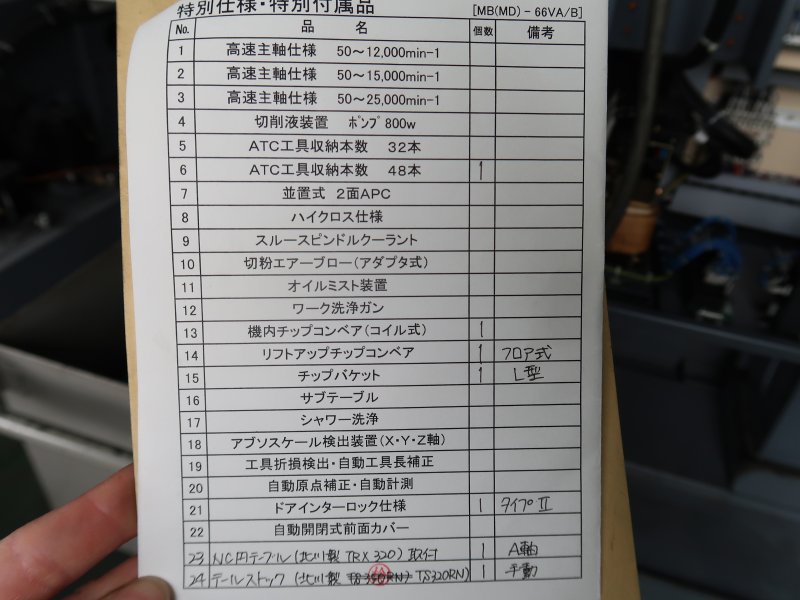 特別仕様・特別付属品 [MB(MD)-66VA/B]
No. 品 名 個数 備考
1 高速主軸仕様 50~12,000min-1
2 高速主軸仕様 50~15,000min-1
3 高速主軸仕様 50~25,000min-1
4 切削液装置 ポンプ 800w
5 ATC工具収納本数 32本
6 ATC工具収納本数 48本 1
7 並置式 2面APC
8 ハイクロス仕様
9 スルースピンドルクーラント
10 切粉エアーブロー(アダプタ式)
11 オイルミスト装置
12 ワーク洗浄ガン
13 機内チップコンベア(コイル式) 1
14 リフトアップチップコンベア 1 フロア式
15 チップバケット 1 L型
16 サブテーブル
17 シャワー洗浄
18 アブソスケール検出装置(X・Y・Z軸)
19 工具折損検出・自動工具長補正
20 自動原点補正・自動計測
21 ドアインターロック仕様 1 タイプII
22 自動開閉式前面カバー
23 NC円テーブル(北川製 TRX320)取付 1 A軸
24 テールストック(北川製 TS320RN) 1 手動